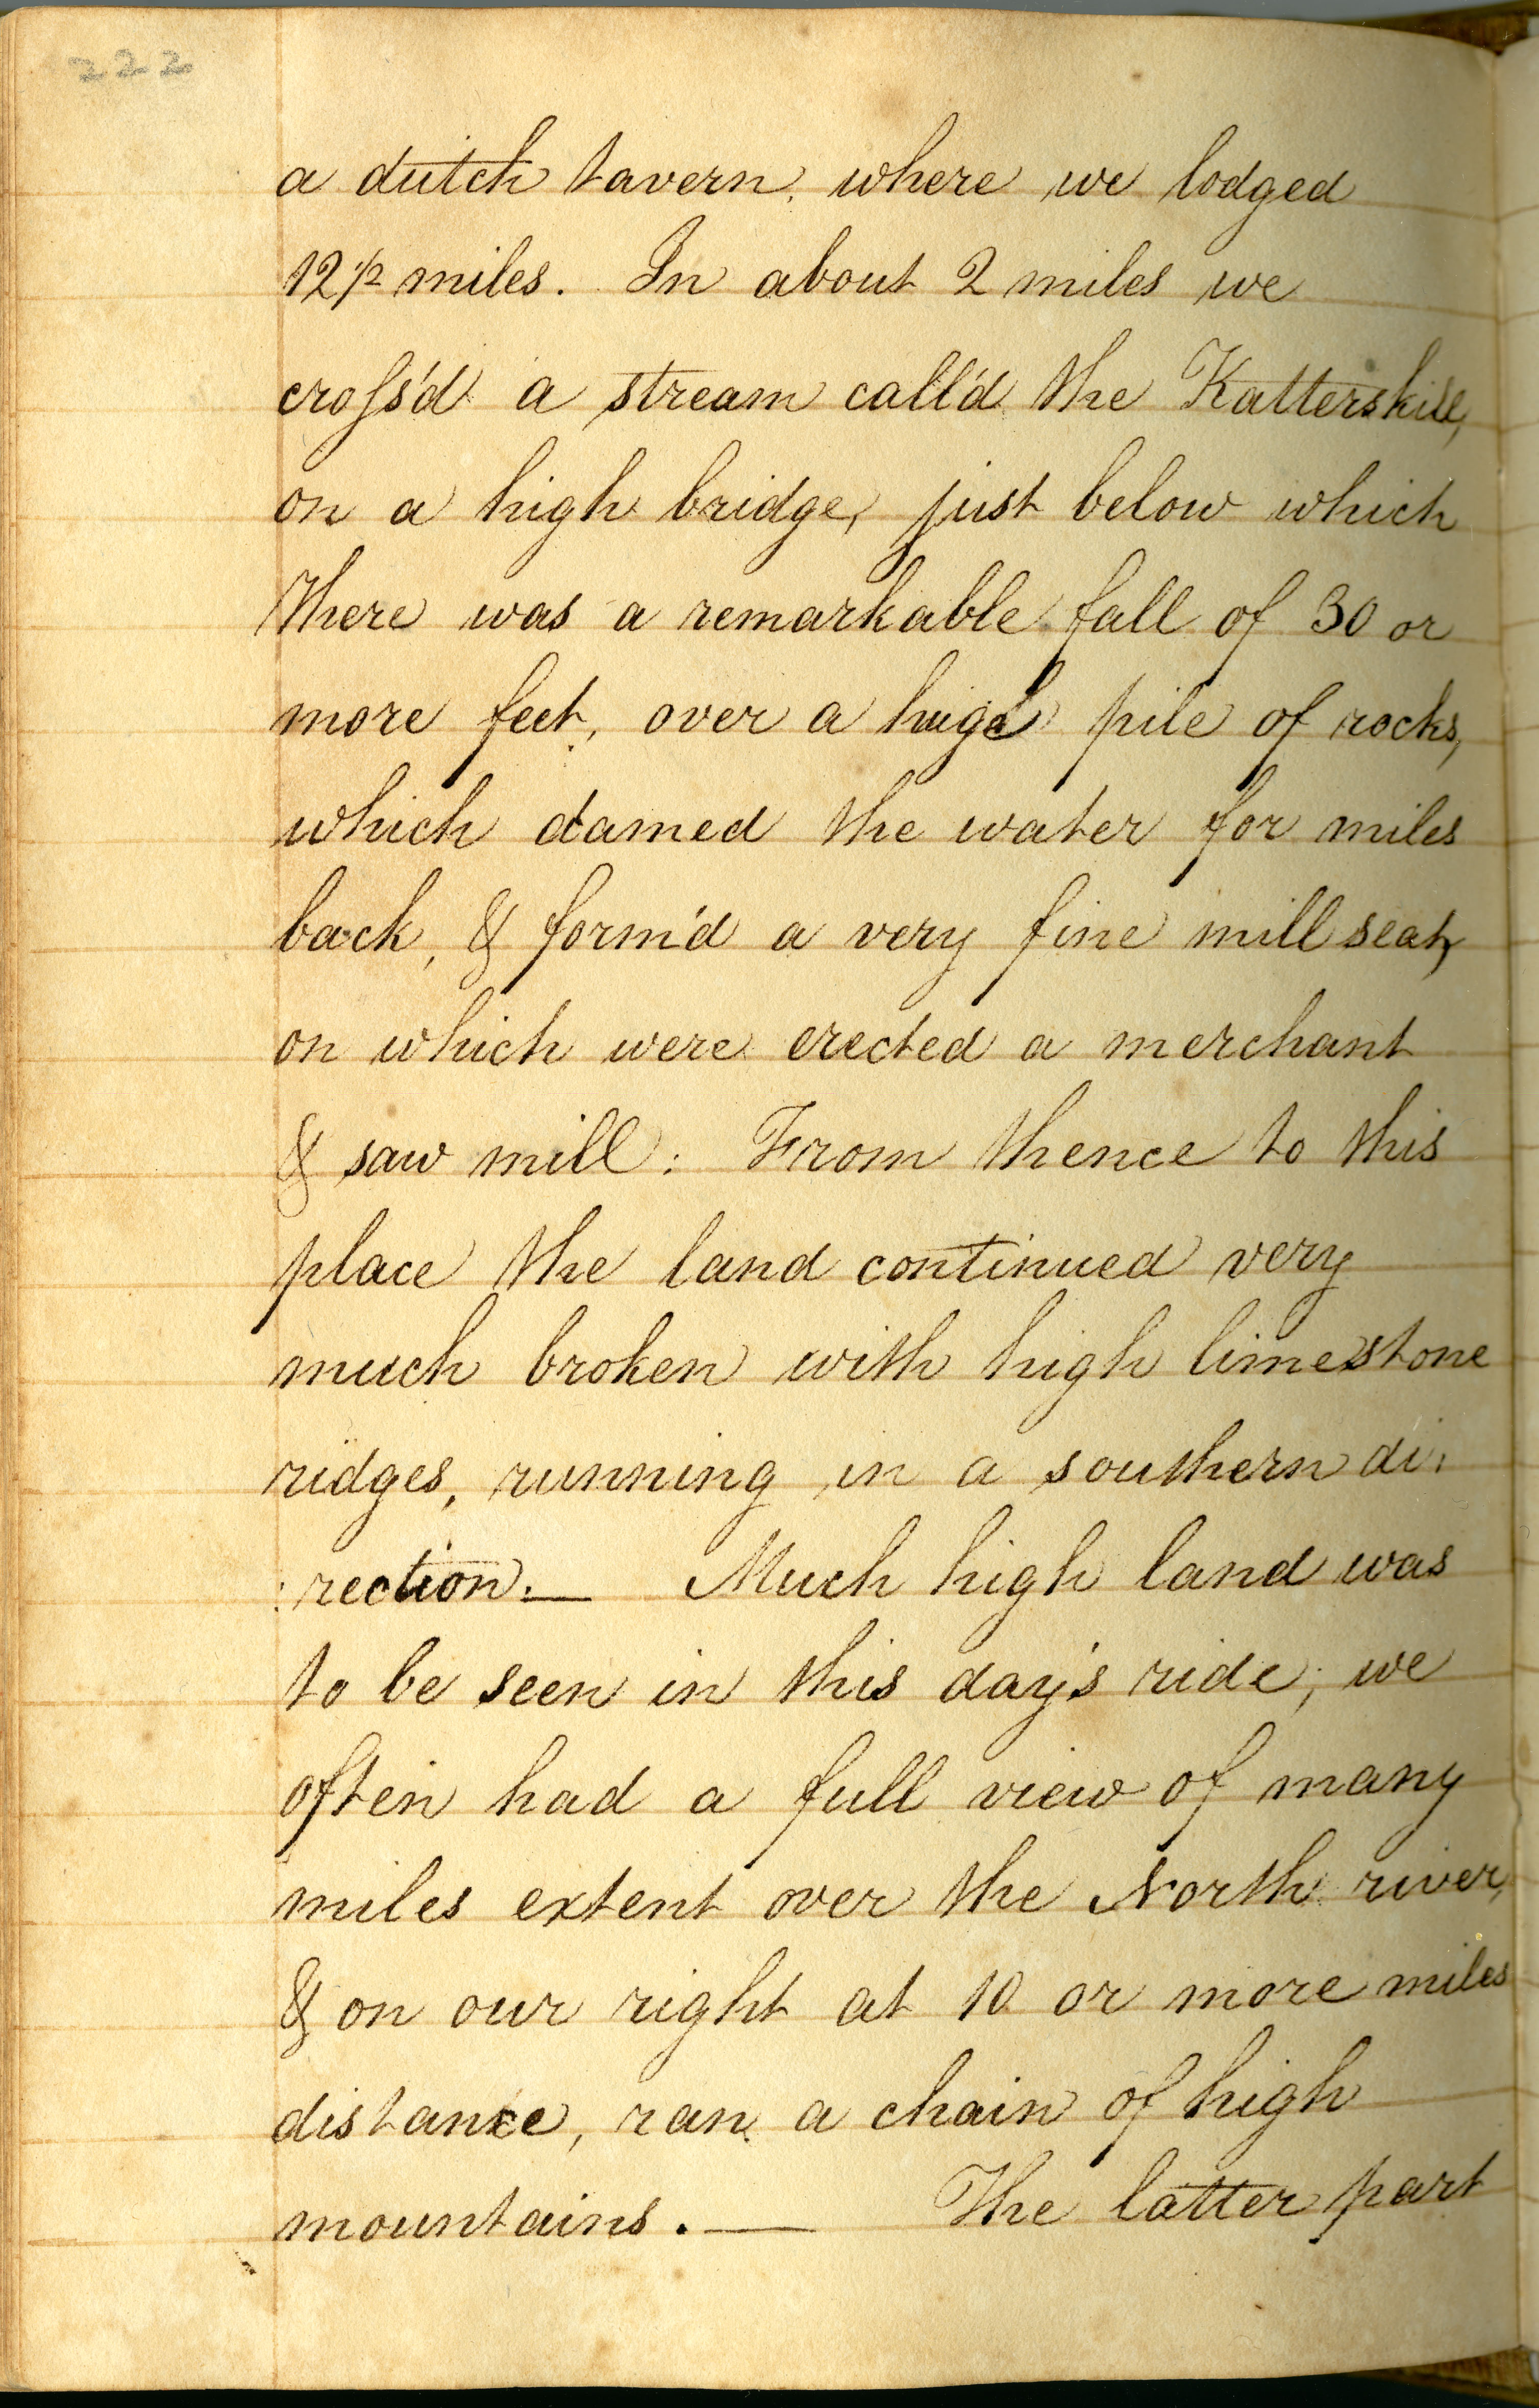 222
a dutch tavern, where we lodged
12 1/2 miles. In about 2 miles we
cross'd a stream call'd the Katterskill,
on a high bridge, just below which
there was a remarkable fall of 30 or
more feet, over a huge pile of rocks,
which damed the water for miles
back, & form'd a very fine mill seat,
on which were erected a merchant
& saw mill: From thence to this
place the land continued very
much broken with high limestone
ridges, running in a southern di:
:rection.— Much high land was
to be seen in this day's ride; we
often had a full view of many
miles extent over the North river,
& on our right at 10 or more miles
distance, ran a chain of high
mountains.— The latter part